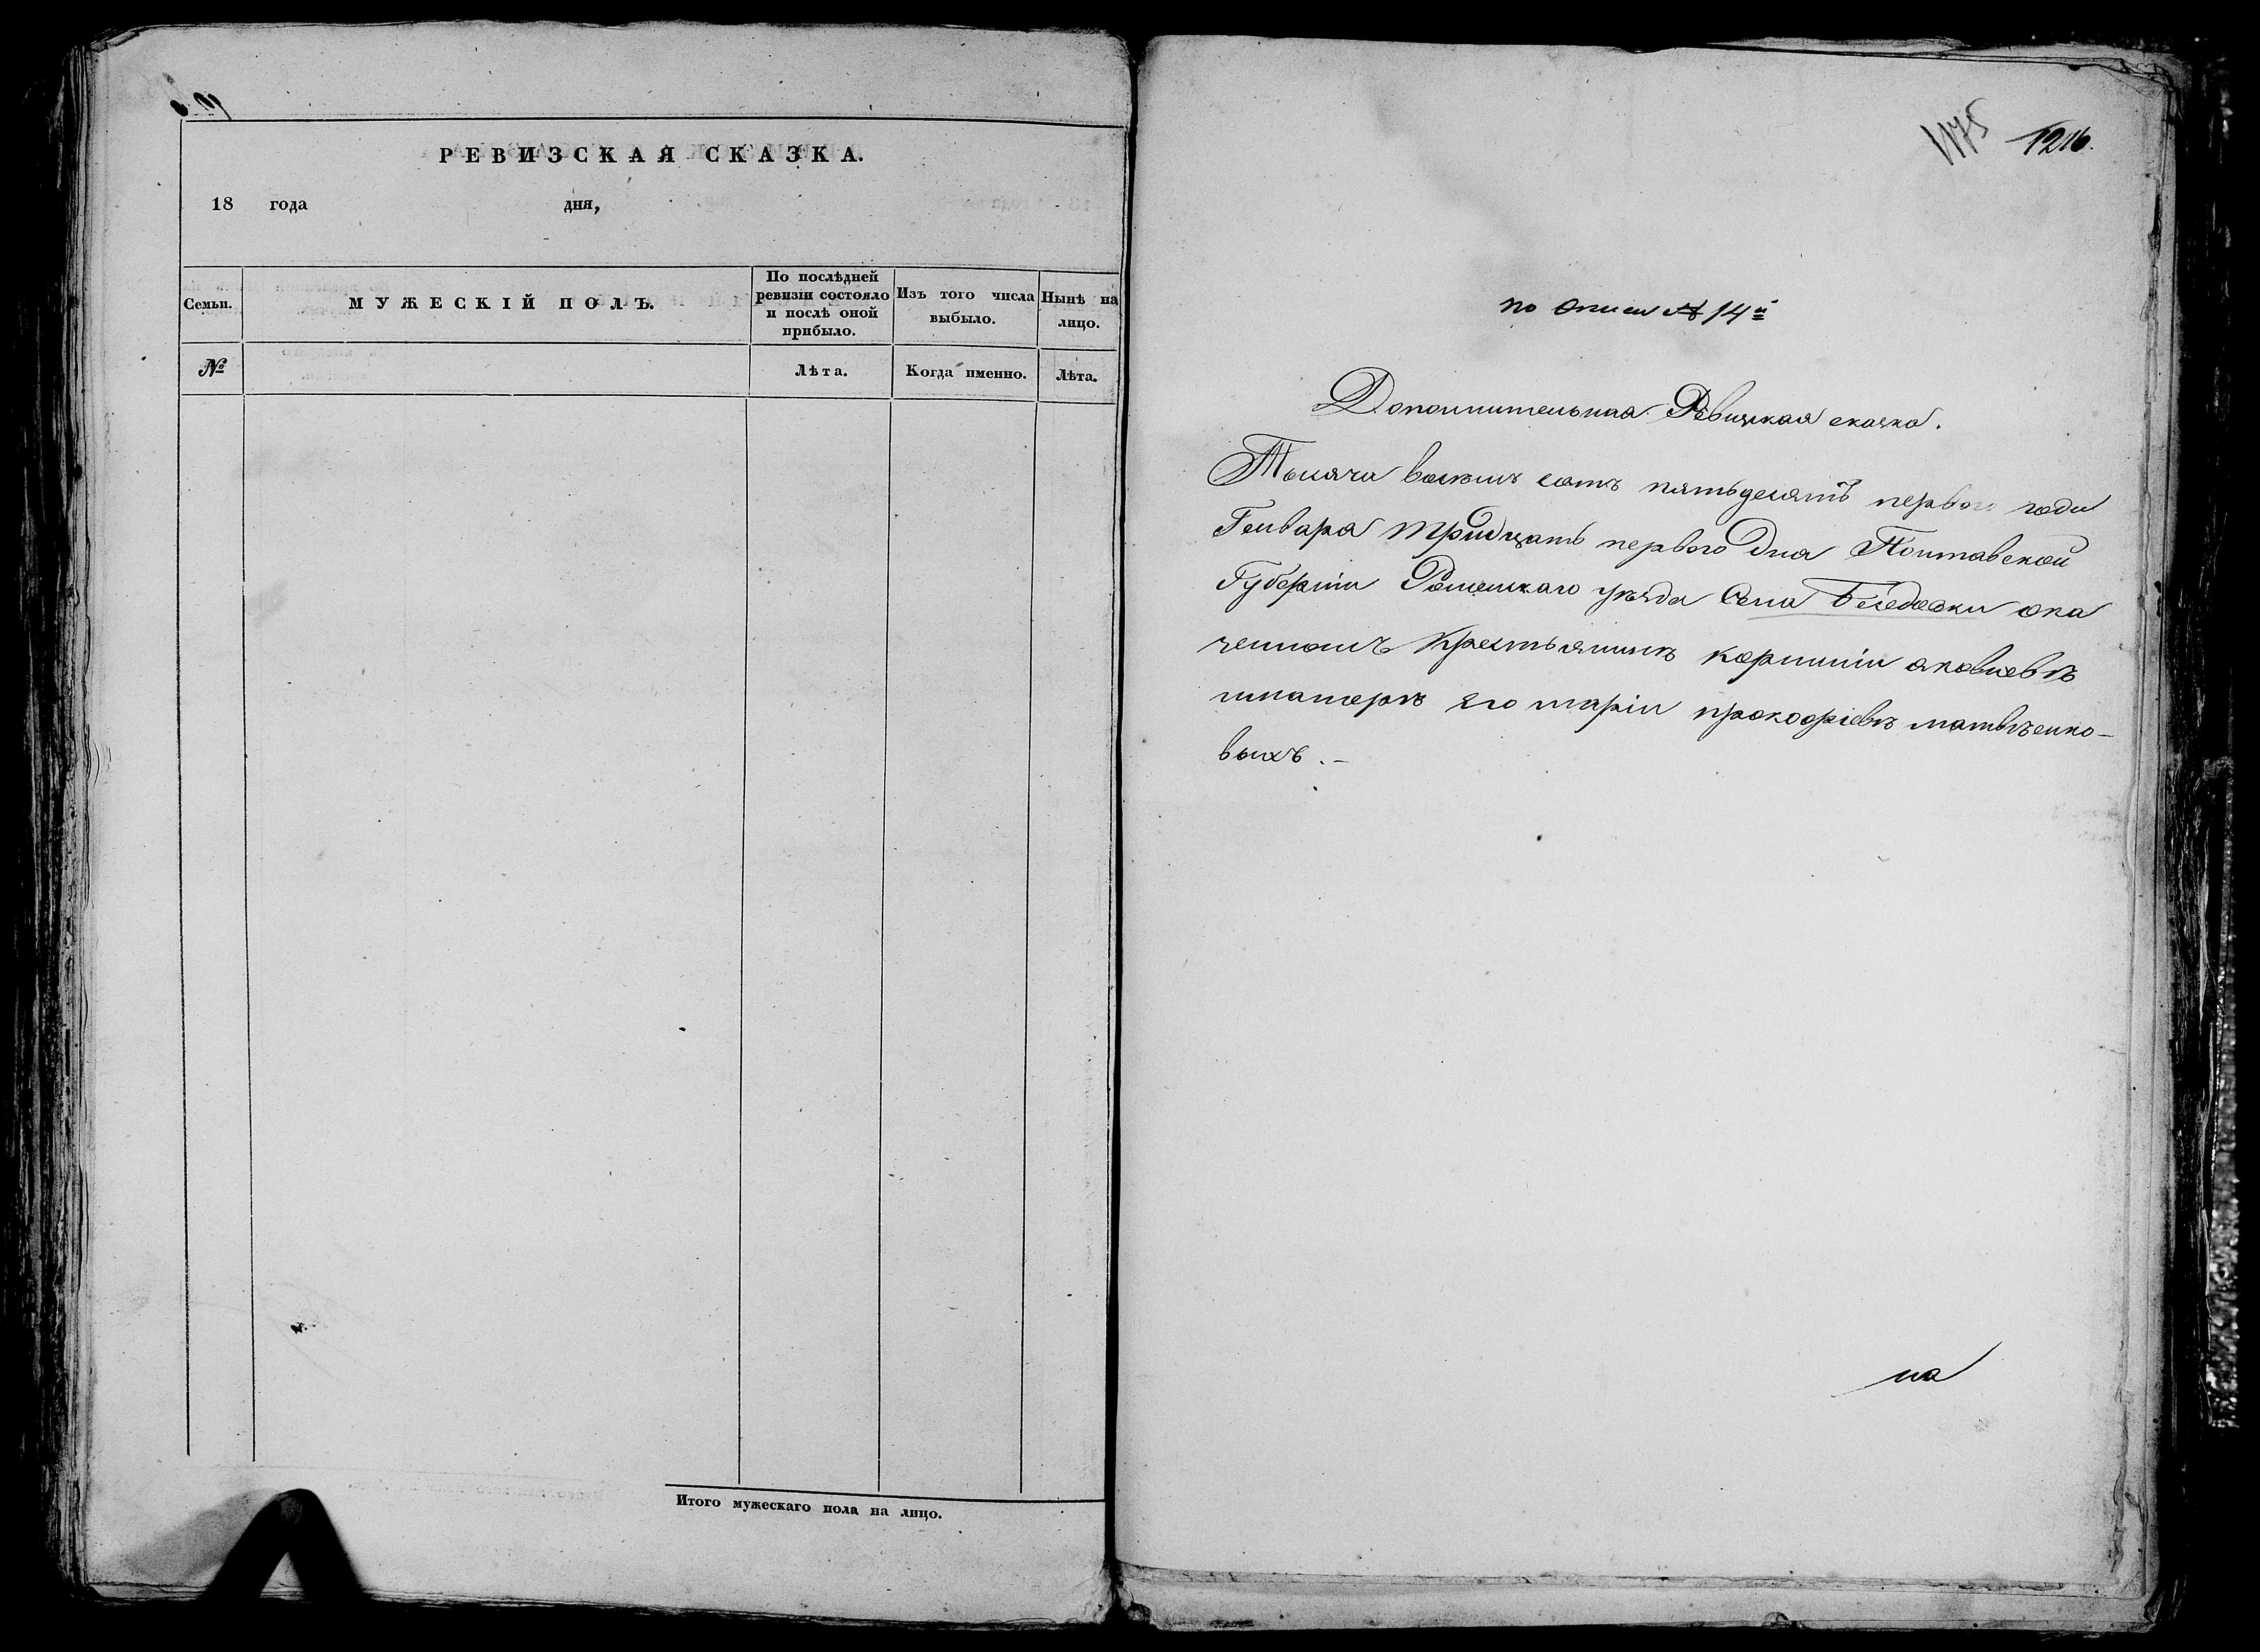 РЕВИЗСКАЯ СКАЗКА.
18 года дня,
Семьи.
МУЖЕСКІЙ ПОЛЪ.
По послѣдней ревизіи состояло и послѣ оной прибыло.
Изъ того числа выбыло.
Нынѣ на лицо.
№
Лѣта.
Когда именно.
Лѣта.
Итого мужескаго пола на лицо.
1175 1216.
по описи № 14й
Дополнительная Ревизкая сказка.
Тысяча восемъ сотъ пятьдесятъ первого года
Генваря тридцать первого Дня Полтавской
Губерніи Роменскаго уѣзда Села Беседовки ока
ченномъ Крестьянинѣ корнилии яковлевѣ
иматерѣ Его маріи прокофіевѣ матвѣенко-
выхъ.-
на